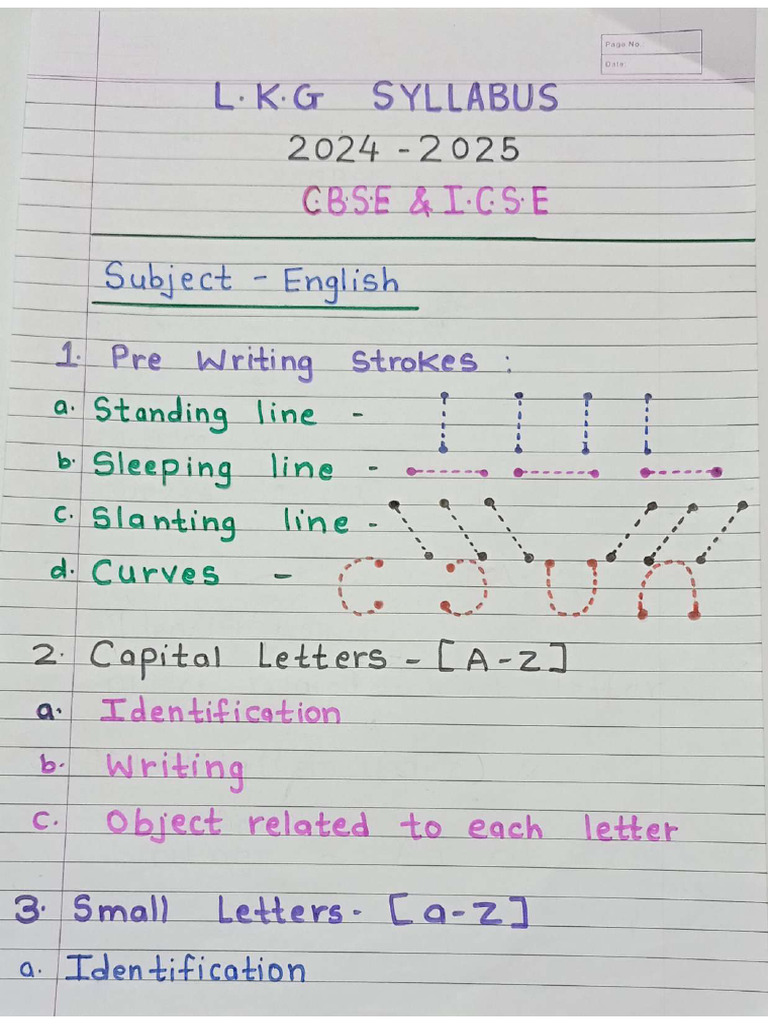 Page No.
Date:
L.K.G SYLLABUS
2024 - 2025
C.B.S.E & I.C.S.E
Subject - English
1. Pre Writing Strokes :
a. Standing line -
b. Sleeping line -
c. Slanting line -
d. Curves -
2. Capital Letters - [A-Z]
a. Identification
b. Writing
c. Object related to each letter
3. Small Letters - [a-z]
a. Identification